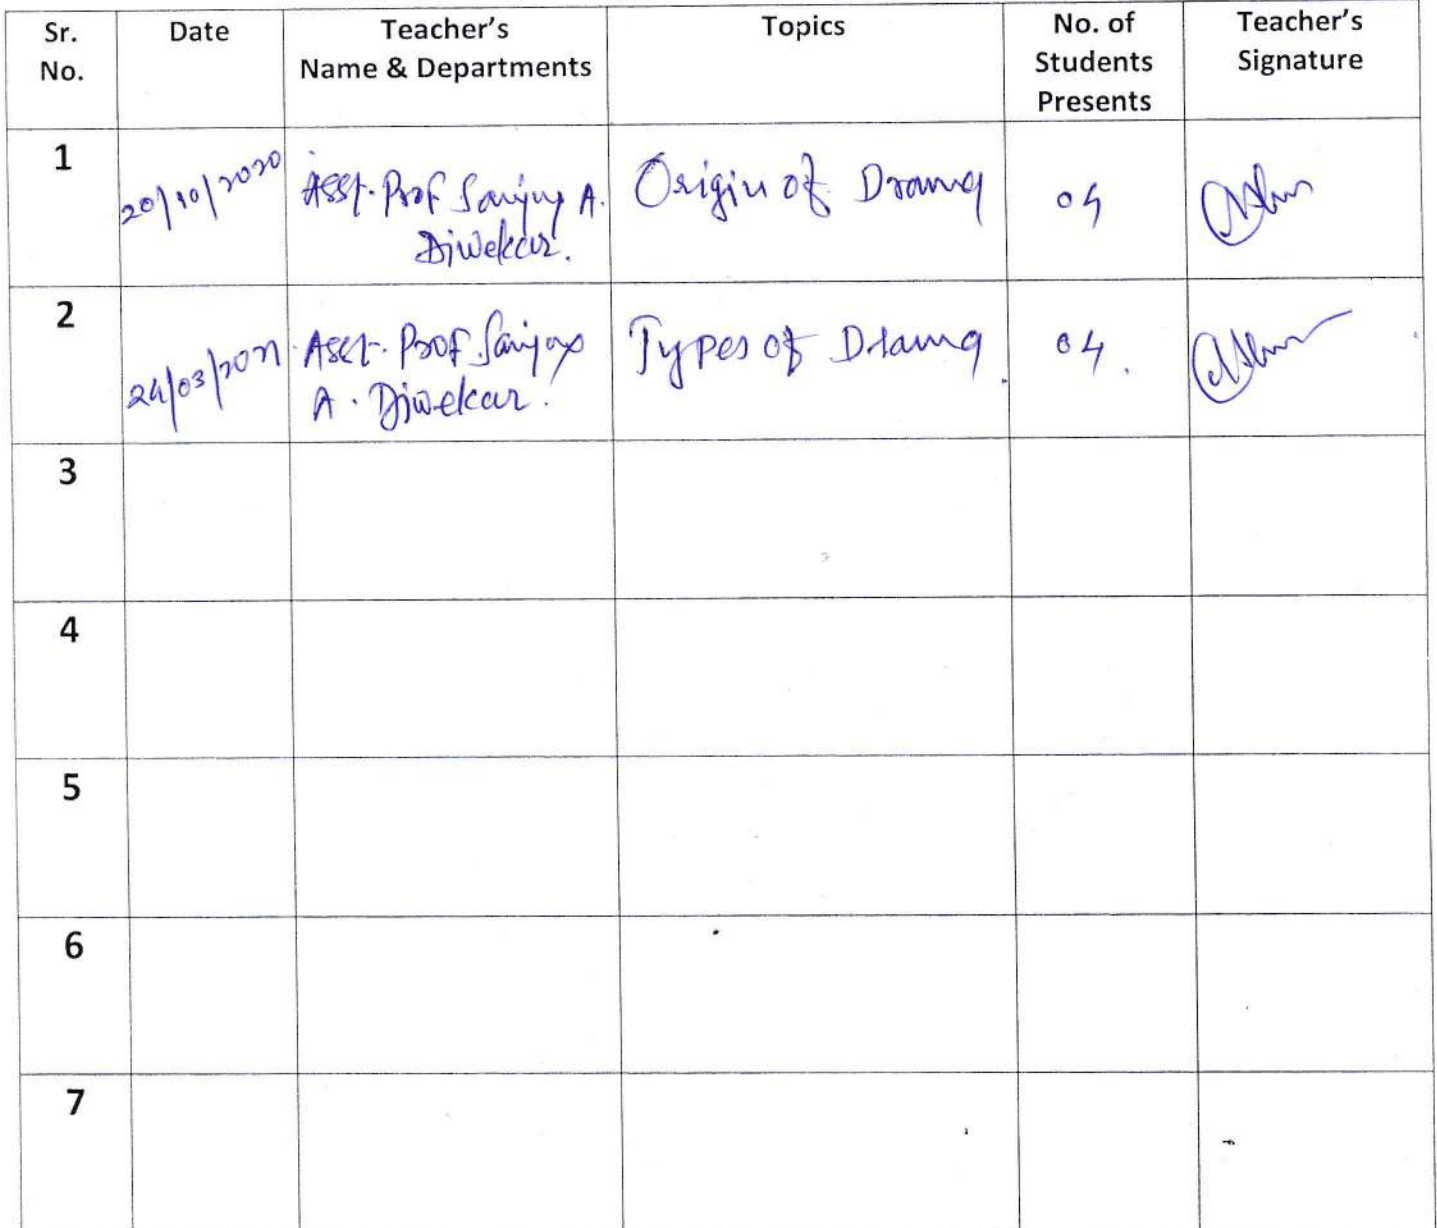 Sr. No. Date Teacher's Name & Departments Topics No. of Students Presents Teacher's Signature
1 20/10/2020 Asst. Prof Sanjay A. Diwekar. Origin of Drama 04
2 24/03/2021 Asst. Prof Sanjay A. Diwekar. Types of Drama 04.
3
4
5
6
7